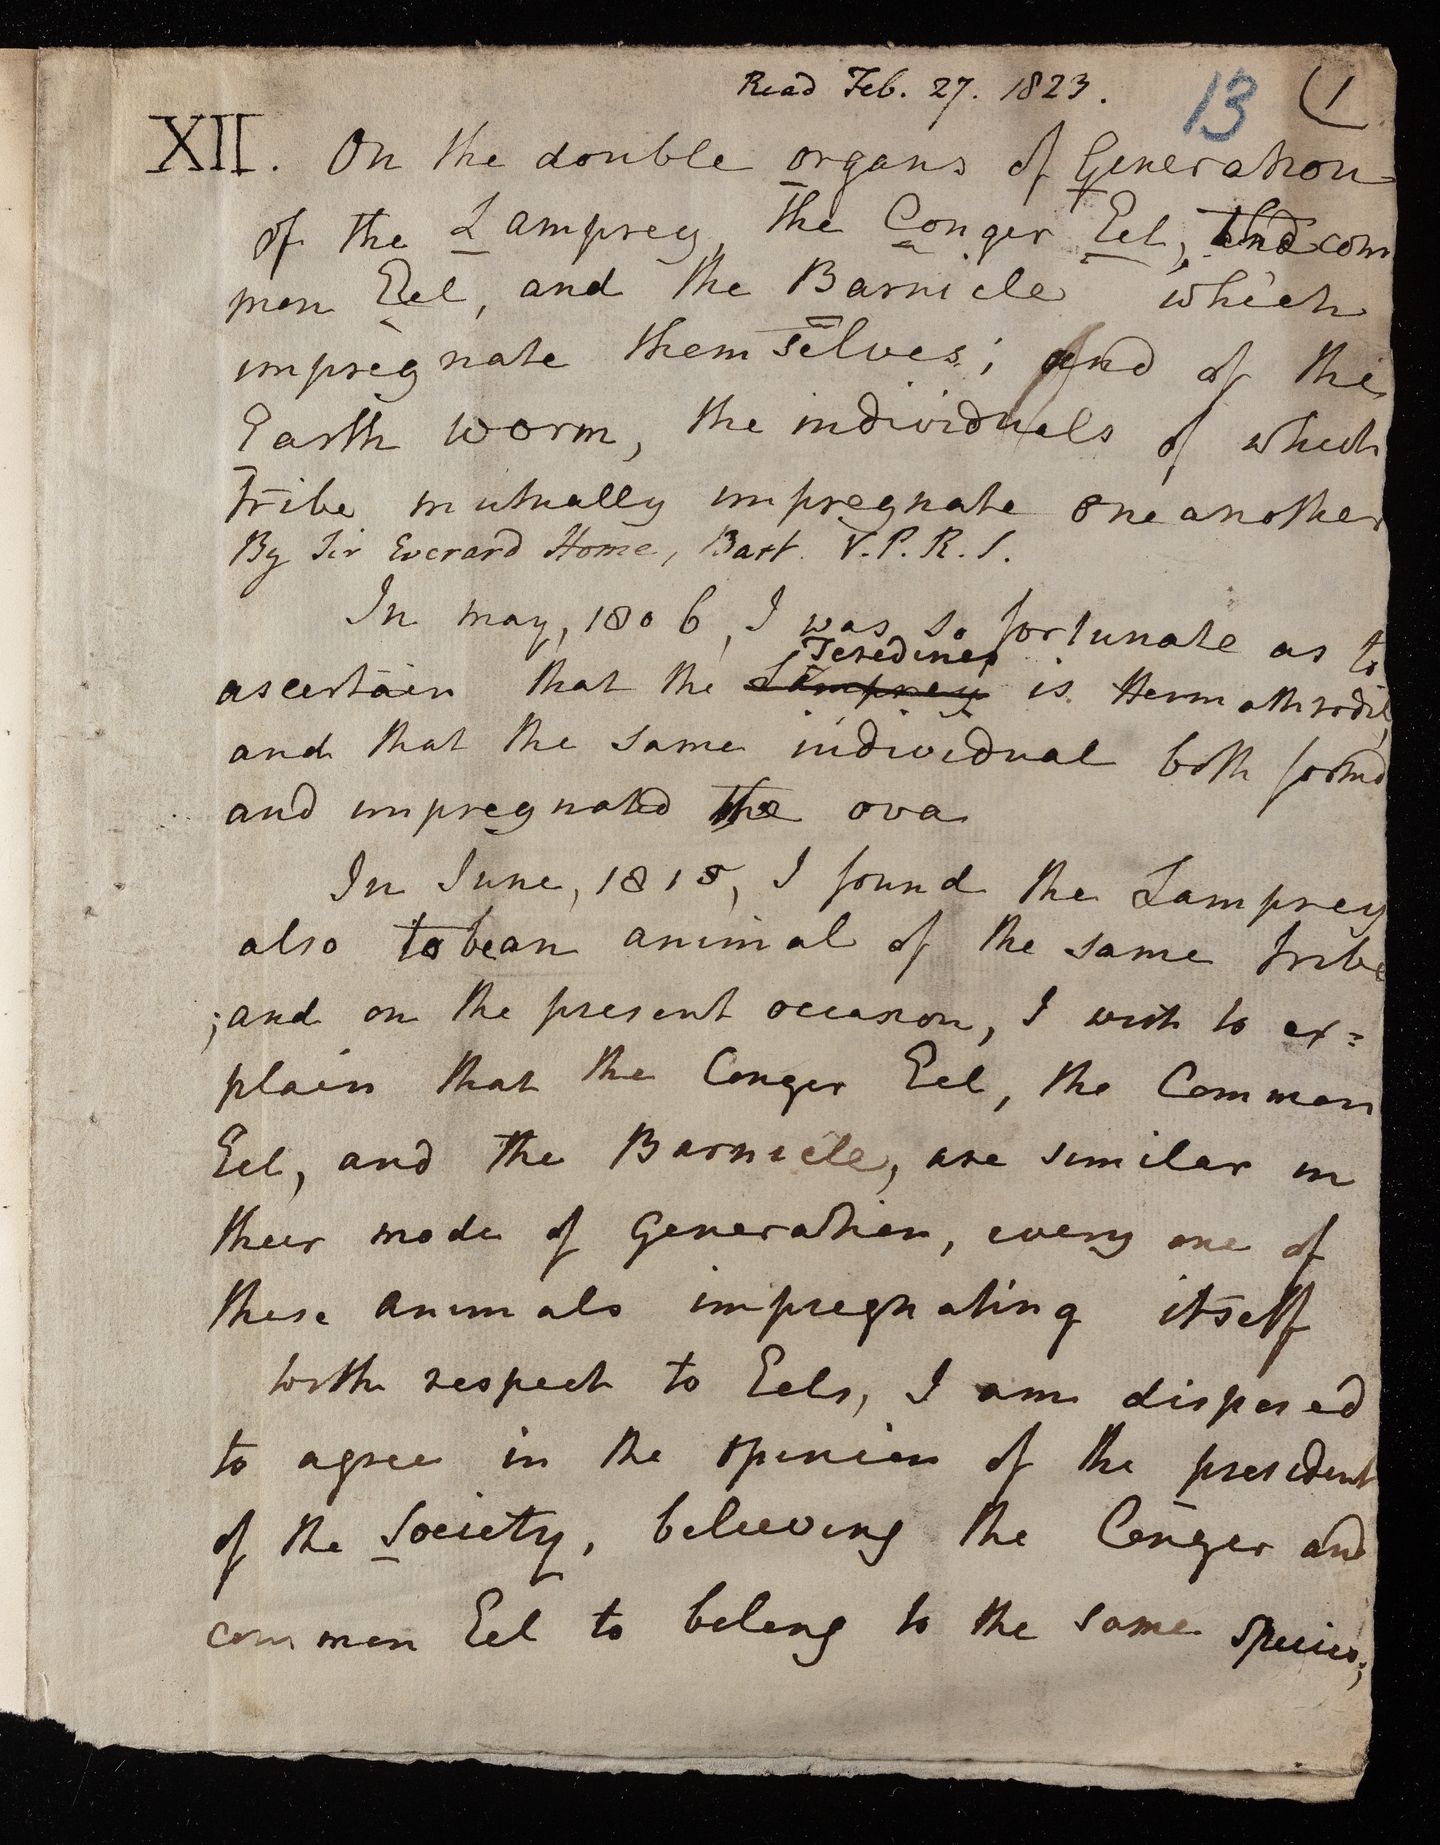 Read Feb. 27. 1823.
13 (1
XII. On the double organs of Generation
of the Lamprey, the Conger Eel, the com
mon Eel, and the Barnicle which
impregnate themselves; and of the
Earth worm, the individuals of which
tribe mutually impregnate one another
By Sir Everard Home, Bart. V.P.R.S.
In may, 1806, I was so fortunate as to
Teredines
ascertain that the Lamprey is Hermathrodit,
and that the same individual both formd
and impregnated the ova
In June, 1815, I found the Lamprey
also to be an animal of the same tribe
; and on the present occasion, I wish to ex=
plain that the Conger Eel, the Common
Eel, and the Barnicle, are similar in
their mode of Generation, every one of
these animals impregnating itself
With respect to Eels, I am disposed
to agree in the opinion of the president
of the Society, believing the Conger and
common Eel to belong to the same species;